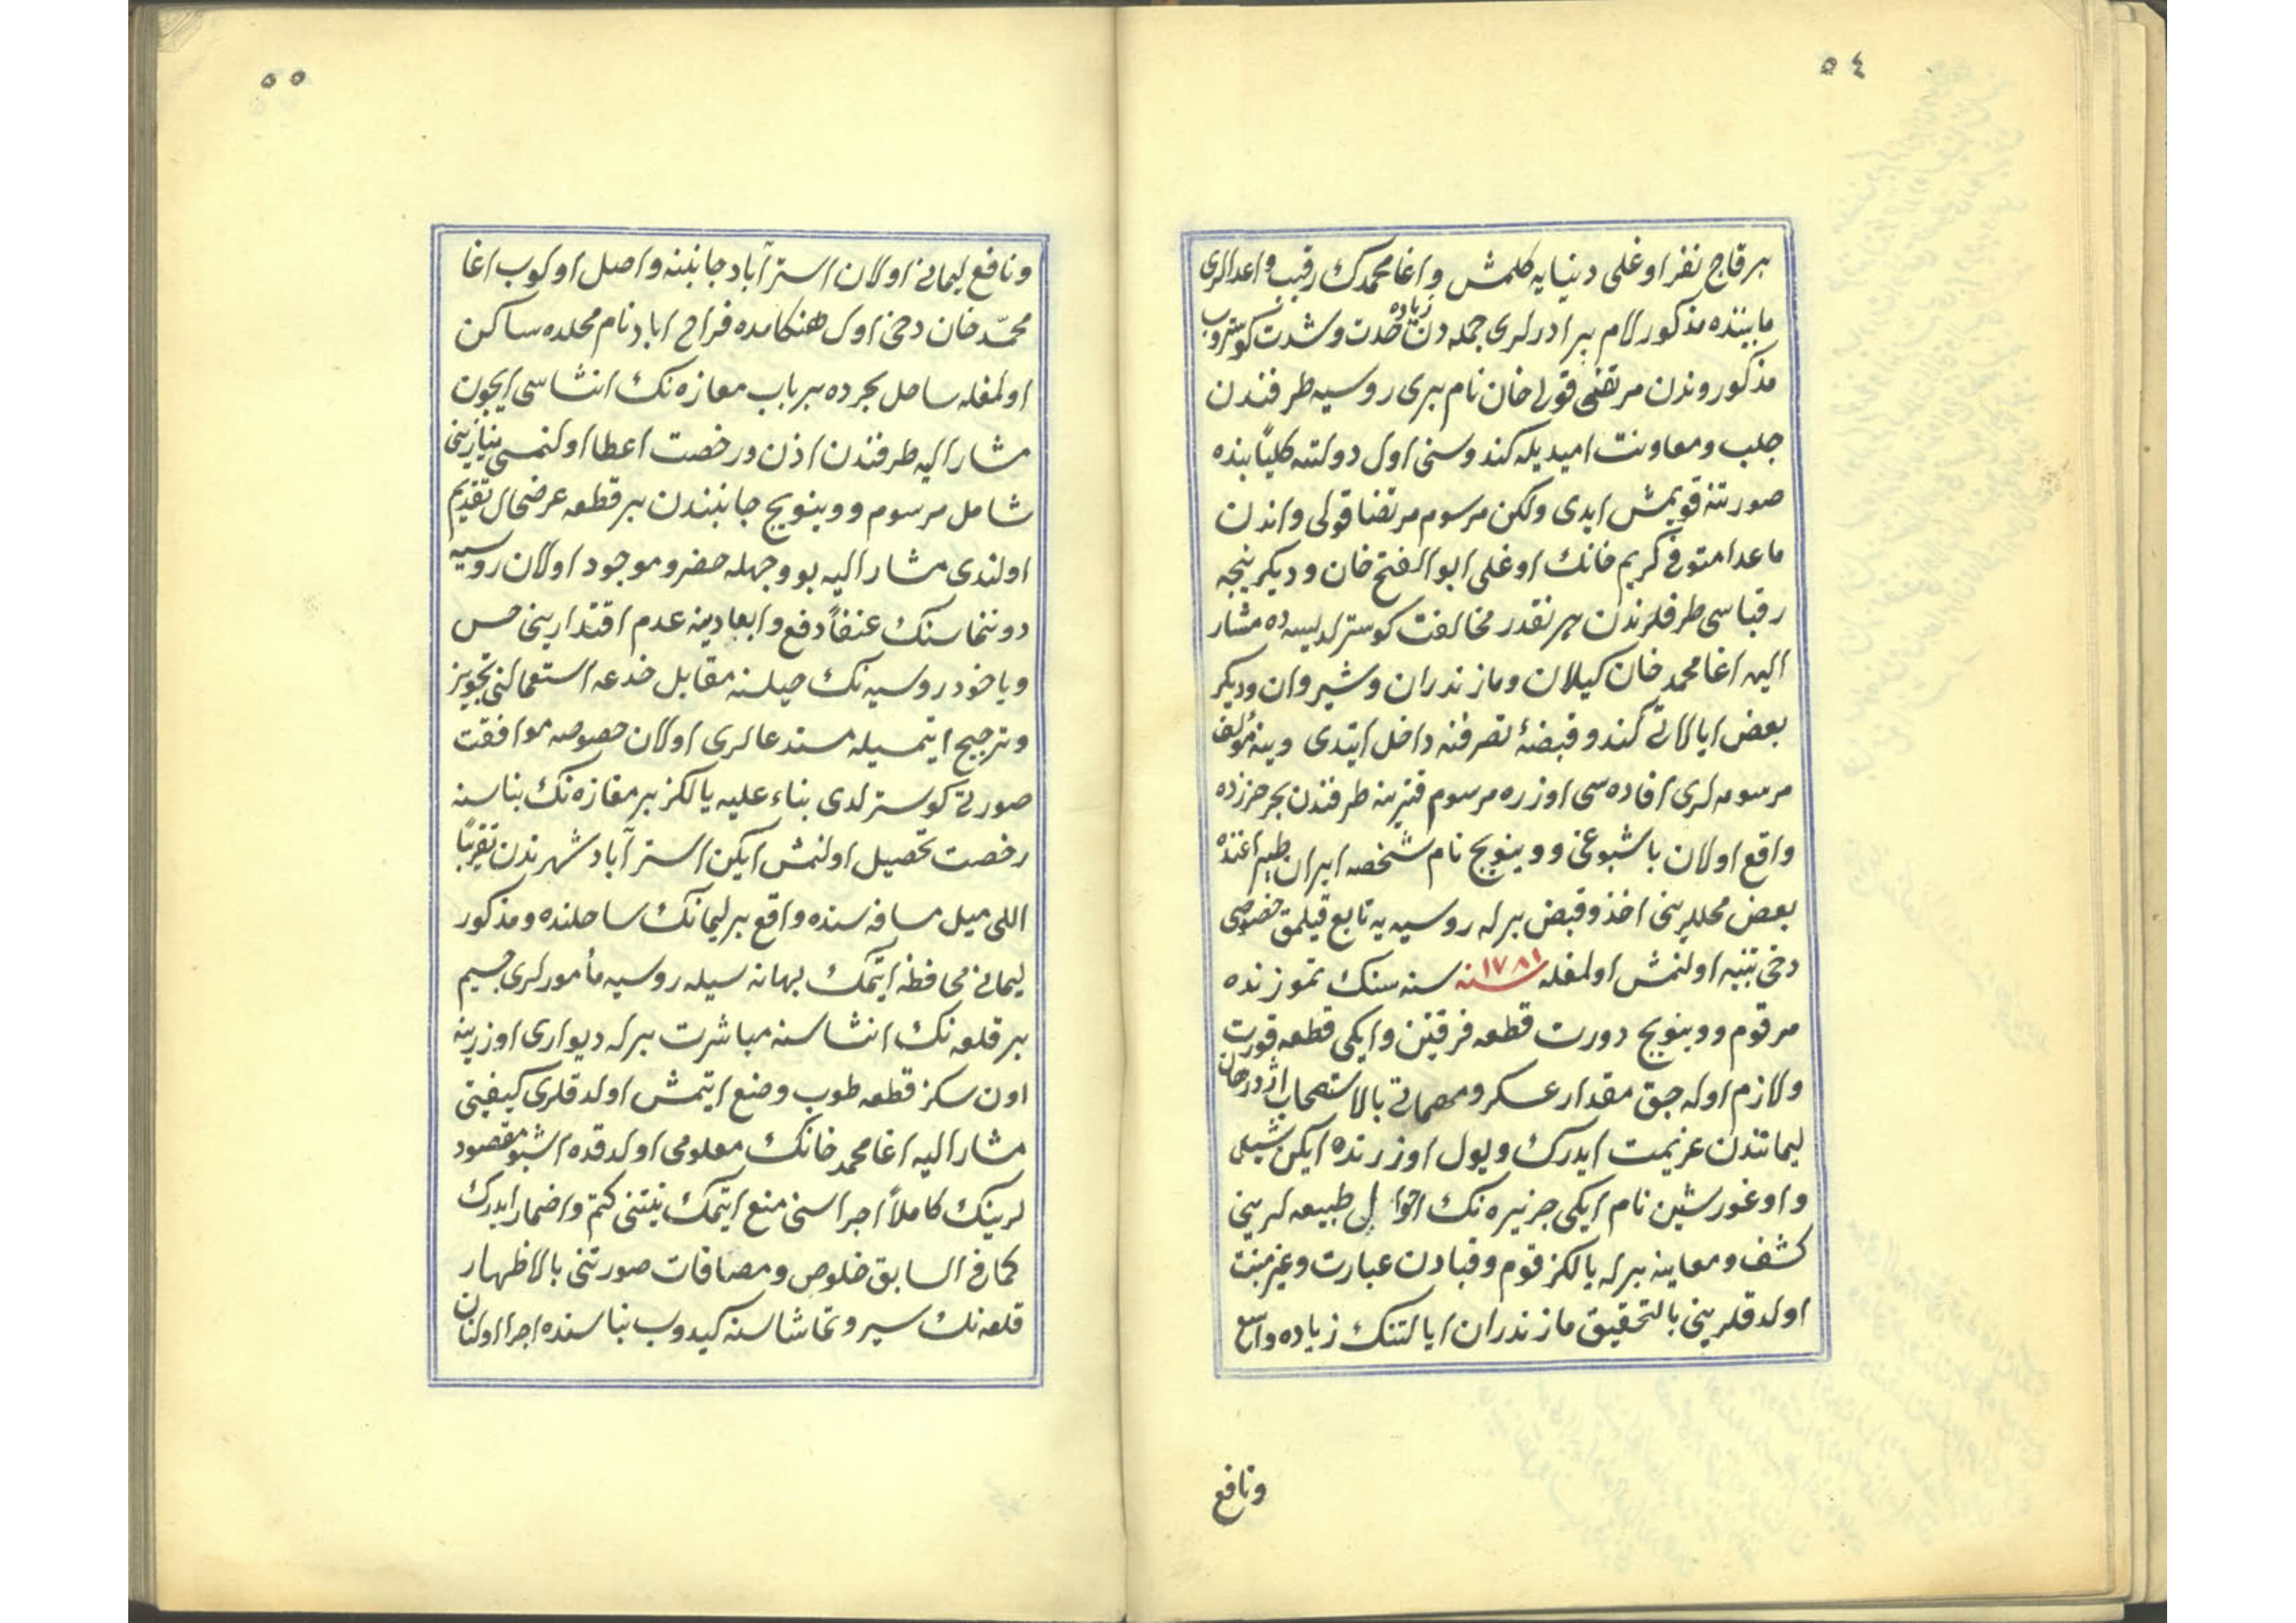 ٥٤
بر قاج نفر اوغلى دنيايه كلمش و اغا محمدك رقيب و اعدالرى
مابيننده مذكور لام برادرلرى جمله دن زياده حدت و شدت كوستروب
مذكوروندن مرتضى قولى خان نام برى روسيه طرفندن
جلب و معاونت اميديله كندوسنى اول دولته كلياً بنده
صورتنه قويمش ايدى ولكن مرسوم مرتضا قولى و اندن
ماعدا متوفى كريم خانك اوغلى ابو الفتح خان و ديكر نيجه
رقباسى طرفلرندن هر نقدر مخالفت كوسترلديسه ده مشار
اليه اغا محمد خان كيلان و مازندران و شيروان و ديكر
بعض ايالاتى كندو قبضهٔ تصرفنه داخل ايتدى وينه مؤلف
مرسومه لرى افاده سى اوزره مرسوم قترينه طرفندن بحر خزرده
واقع اولان باشبوغى ووينويچ نام شخصه ايران طپراغنده
بعض محللرينى اخذ و قبض برله روسيه يه تابع قيلمق خصوصى
دخى تنبيه اولنمش اولمغله سنه ١٧٨١ سنه سنك تموزنده
مرقوم ووينويچ دورت قطعه فرقتين و ايكى قطعه قورت
ولازم اوله جق مقدار عسكر و مهماتى بالاستصحاب اژدرخان
ليمانندن عزيمت ايدرك ويول اوزرنده ايكن شيلى
و اوغورشين نام ايكى جزيره نك احوال طبيعه لرينى
كشف و معاينه برله يالكز قوم و قيادن عبارت و غير منبت
اولدقلرينى بالتحقيق مازندران ايالتنك زياده واسع
ونافع
٥٥
ونافع ليمانى اولان استرآباد جانبنه واصل اولوب اغا
محمّد خان دخى اول هنكامده فراح اباد نام محلده ساكن
اولمغله ساحل بحرده بر باب مغازه نك انشاسى ايچون
مشار اليه طرفندن اذن و رخصت اعطا اولنمسى نيازينى
شامل مرسوم ووينويچ جانبندن بر قطعه عرضحال تقديم
اولندى مشار اليه بو وجهله حضر و موجود اولان روسيه
دوننماسنك عنفاً دفع و ابعادينه عدم اقتدارينى حس
و ياخود روسيه نك حيلسنه مقابل خدعه استعمالنى تجويز
و ترجيح ايتمسيله مستدعالرى اولان خصوصه موافقت
صورتى كوسترلدى بناء عليه يالكز بر مغازه نك بناسنه
رخصت تحصيل اولنمش ايكن استرآباد شهرندن تقريباً
اللى ميل مسافه سنده واقع بر ليمانك ساحلنده و مذكور
ليمانى محافظه ايتمك بهانه سيله روسيه مأمورلرى جسيم
بر قلعه نك انشاسنه مباشرت برله ديوارى اوزرينه
اون سكز قطعه طوب وضع ايتمش اولدقلرى كيفيتى
مشار اليه اغا محمد خانك معلومى اولدقده اشبو مقصود
لرينك كاملاً اجراسنى منع ايتمك نيتنى كتم و اضمار ايدرك
كما فى السابق خلوص و مصافات صورتنى بالاظهار
قلعه نك سير و تماشاسنه كيدوب بناسنده اجرا اولنان